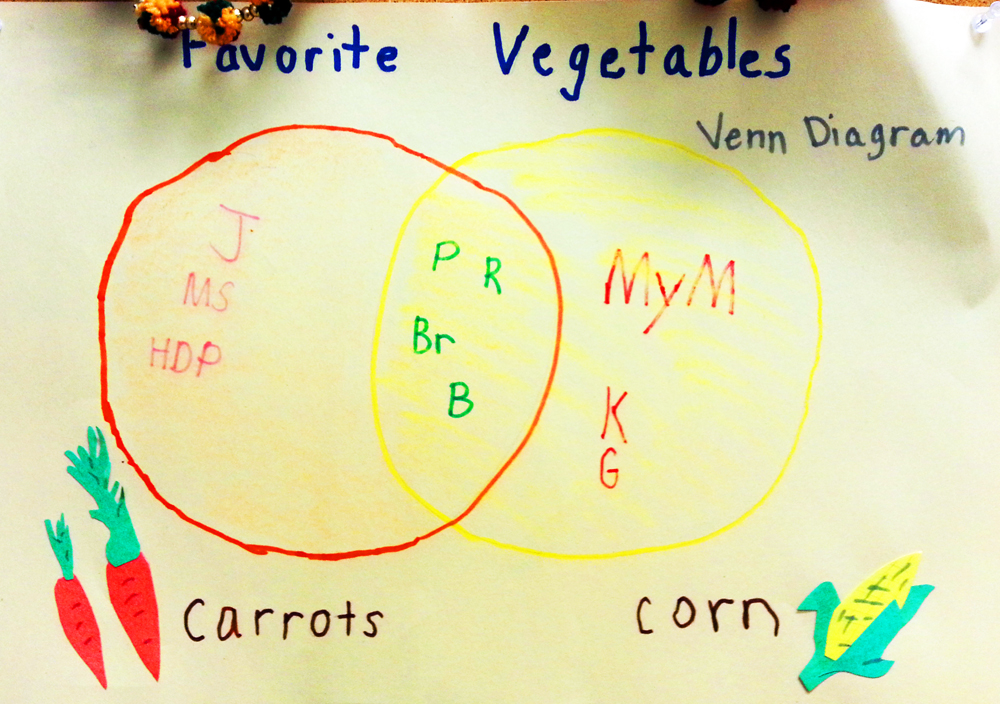 Favorite Vegetables
Venn Diagram
J
MS
HDP
P R
Br
B
MyM
K
G
carrots
corn